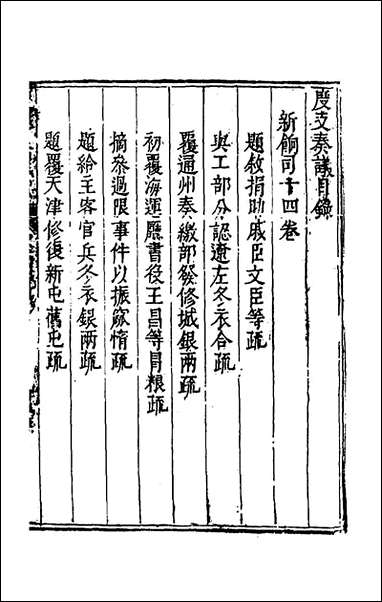 度支奏議目錄
新餉司十四卷
題敘捐助戚臣文臣等疏
與工部分認遼左冬衣合疏
覆通州奏繳部發修城銀兩疏
初覆海運廳書役王昌等冐糧疏
摘參過限事件以振窳惰疏
題給主客官兵冬衣銀兩疏
題覆天津修復新屯舊屯疏